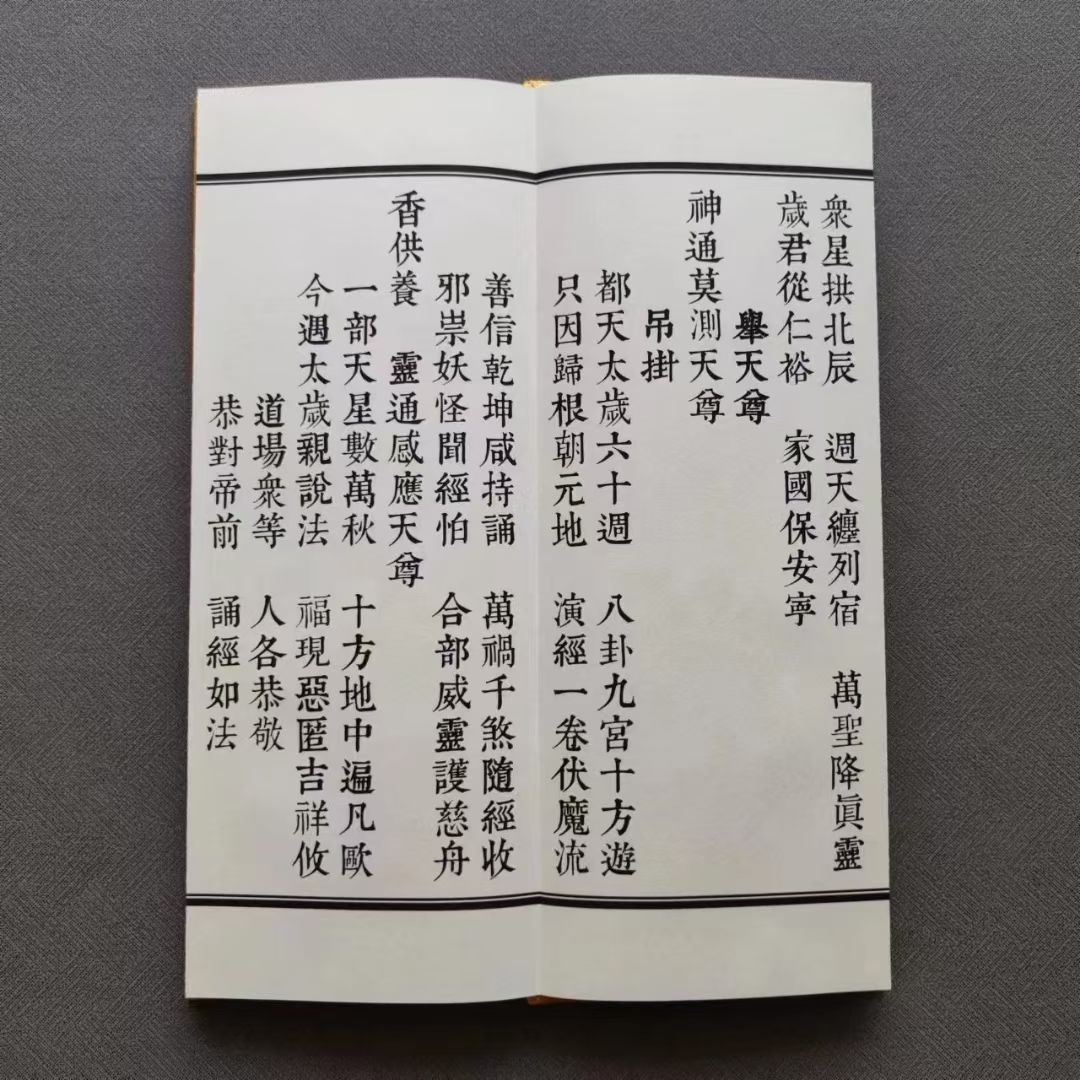 衆星拱北辰　週天纏列宿　萬聖降眞靈
歲君從仁裕　家國保安寧
舉天尊
神通莫測天尊
吊掛
都天太歲六十週　八卦九宮十方遊
只因歸根朝元地　演經一卷伏魔流
善信乾坤咸持誦　萬禍千煞隨經收
邪祟妖怪聞經怕　合部威靈護慈舟
香供養　靈通感應天尊
一部天星數萬秋　十方地中遍凡歐
今遇太歲親說法　福現惡匿吉祥攸
道場衆等　人各恭敬
恭對帝前　誦經如法